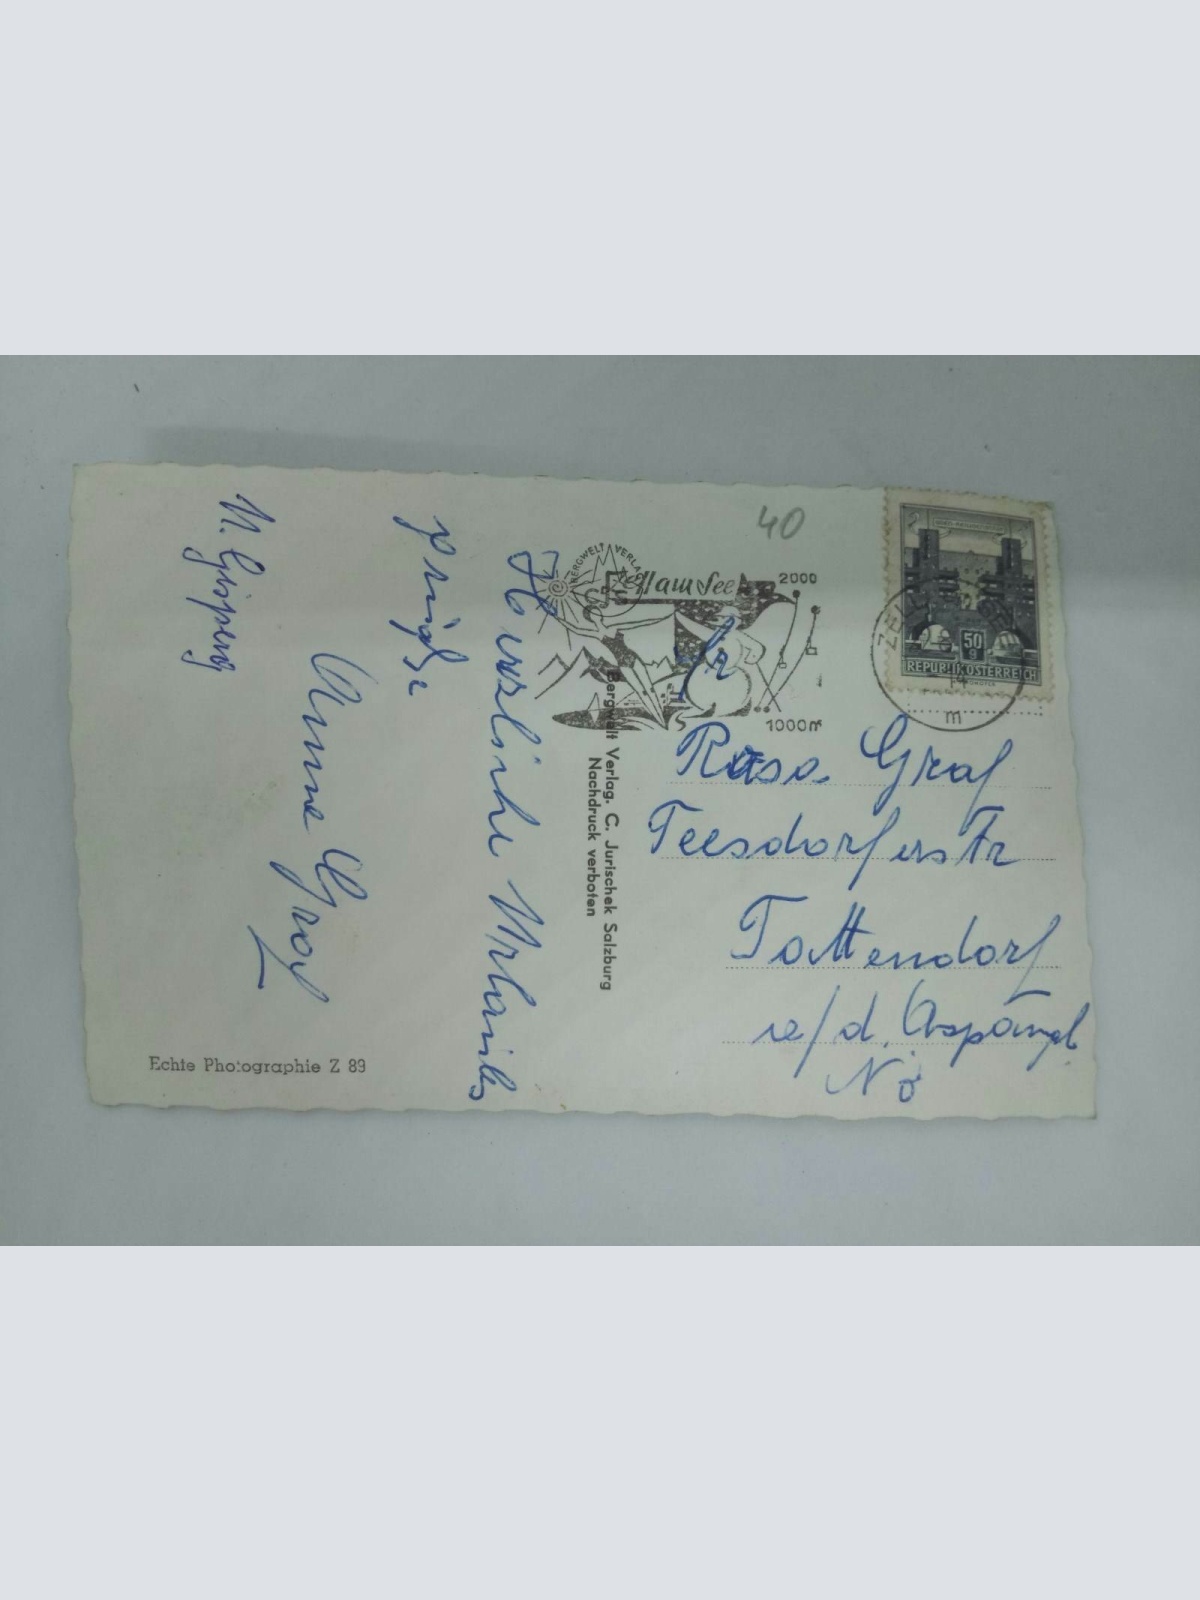 Herzliche Urlaubs
grüße
Anna Graf
40
BERGWELT VERLAG
Zell am See
2000
1000m
50 g
REPUBLIK ÖSTERREICH
m
Bergwelt Verlag. C. Jurischek Salzburg
Nachdruck verboten
Fr
Rosa Graf
Teesdorferstr
Tattendorf
a/d. Aspangb
NÖ
Echte Photographie Z 89